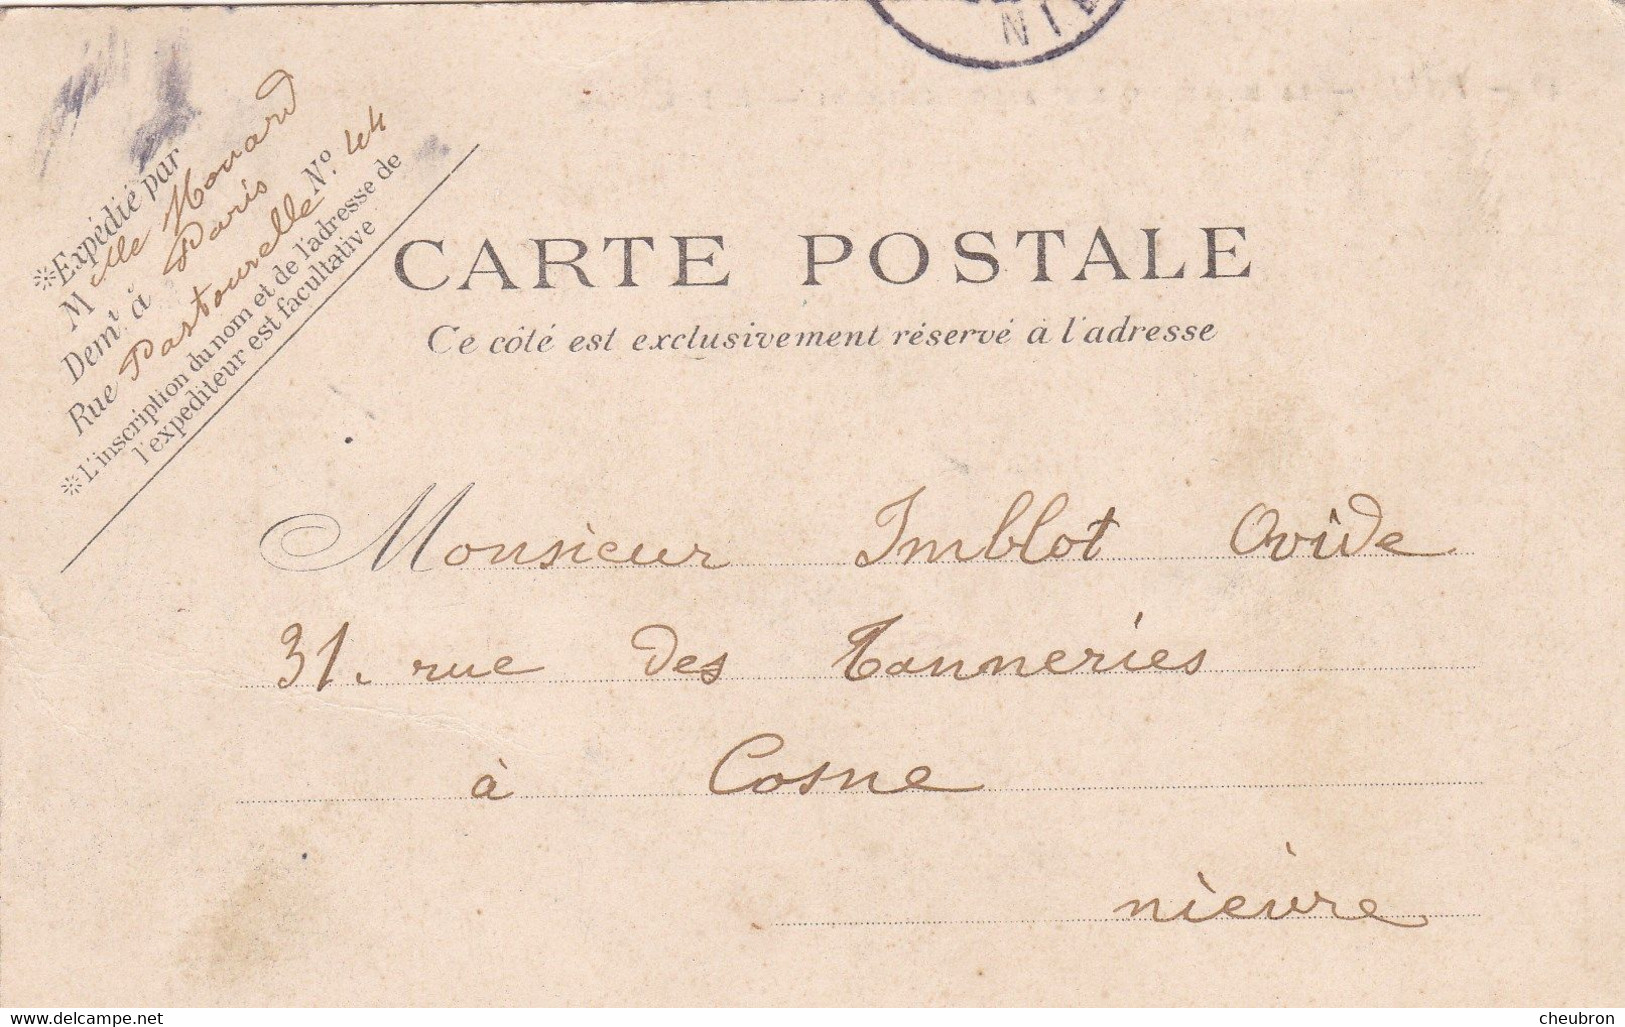 NIÈV
※Expédié par
Mlle Mouard
Demt à Paris
Rue Pastourelle No. 44
※L'inscription du nom et de l'adresse de
l'expediteur est facultative
CARTE POSTALE
Ce côté est exclusivement réservé à l'adresse
Monsieur Imblot Ovide
31. rue des Tanneries
à Cosne
nièvre
www.delcampe.net
cheubron